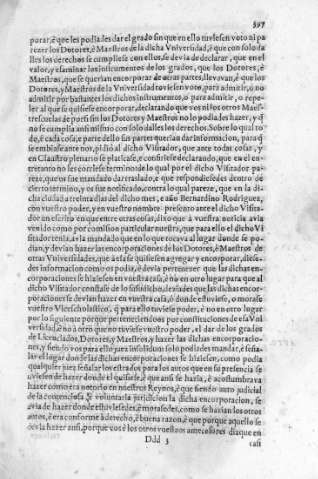 397
porar, è que les podia des dar el grado sin que en ello tuviesen voto ni pa
recer los Dotores, è Maestros de la dicha Vniversidad, è que con solo da
lles los derechos se cumpliese con ellos, se devia declarar, que en el
valor, y esaminar los instrumentos de los grados, que los Dotores, è
Maestros, que se querian encorporar de otras partes, llevavan, è que los
Dotores, y Maestros de la Vniversidad tuviesen voto, para admitir, ò no
admitir por bastantes los dichos instrumentos, ò para admitir, o repe-
ler al que se quisiese encorporar, declarando que vos ni los otros Maes-
trescuelas de por si sin los Dotores y Maestros no lo podiades hazer, y que
no se cumplia ansimismo con solo dalles los derechos. Sobre lo qual to-
do, è cada cosa, è parte dello sin partes querian dar informacion, para que
se embiase ante nos, pidio al dicho Visitador, que ante todas cosas, y
en Claustro plenario se platicase, è confiriese declarando, que en el en-
tretanto no les corriese termino de lo qual por el dicho Visitador pa-
rece, que os fue mandado dar traslado, è que respondiesedes dentro de
cierto termino, y os fue notificado, contra lo qual parece, que en la di-
cha ciudad a treinta dias del dicho mes, è año Bernardino Rodriguez,
con vuestro poder, y en vuestro nombre presento ante el dicho Visita-
dor un escrito en que entre otras cosas, dixo que a vuestra noticia avia
venido como por comision particular nuestra, que para ello el dicho Vi
sitador tenia, avia mandado que en lo que tocava al lugar donde se po-
dian, y devian hazer las encorporaciones de los Dotores, è Maestros de
otras Vniversidades, que a la se quisiesen agregar y encorporar, diese-
des informacion como os podia, è devia pertenecer que las dichas en-
corporaciones se hiziesen en vuestra casa, è no en otro lugar para que al
dicho Visitador constase de lo susodicho, deviades que las dichas encor-
poraciones se devian hazer en vuestra casa, ò donde estuviese, o morase
vuestro Vicescholastico, que para ello tuviese poder, è no en otro lugar
por lo siguiente porque pertenecientedos por constituciones de esa Vni
versidad, è no a otro que no tuviese vuestro poder, el dar de los grados
de Licenciados, Dotores, y Maestros, y hazer las dichas encorporacio-
nes, y siendo vos para ello juez insolidum solo podiades mandar, è seña-
lar el lugar donde las dichas encorporaciones se hiziesen, como podia
qualquier juez señalar los estrados para los autos que en su presencia se
oviesen de hazer donde el quisiese, è que ansi se hazia, è acostumbrava
hazer como era notorio en nuestros Reynos, è que siendo auto judicial
de la contenciosa, ò voluntaria juridicion la dicha encorporacion, se
avia de hazer donde estuviesedes, è morasedes, como se hazian los otros
autos, è era conforme a derecho, è buena razon, è que porque aquello se
devia hazer ansi, porque vos è los otros vuestros antecesores di que en
Ddd 3
casi